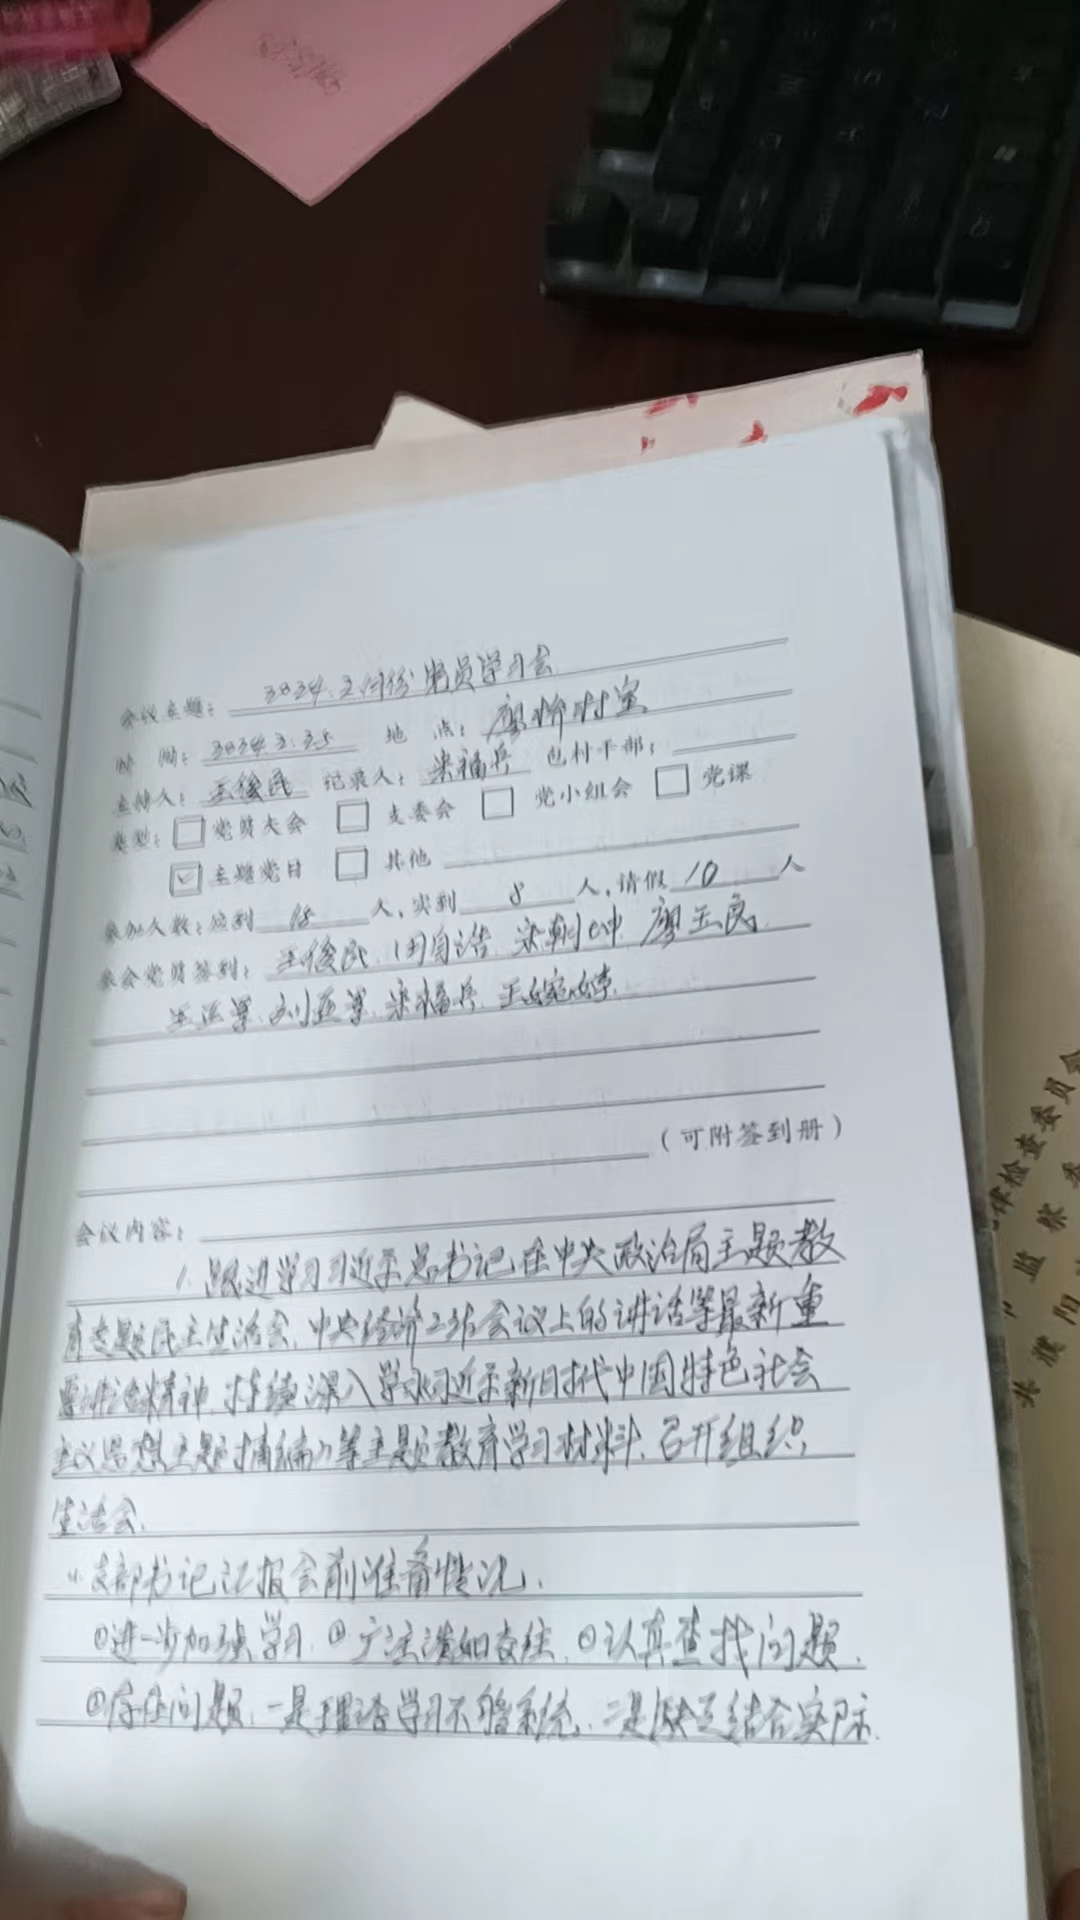 会议主题：2024.2月份党员学习会
时间：2024.2.25 地点：廖桥村室
主持人：王俊民 记录人：宋福兵 包村干部：
类型：□党员大会 □支委会 □党小组会 □党课
☑主题党日 □其他
参加人数：应到 18 人，实到 8 人，请假 10 人
参会党员签到：王俊民 廖玉民
刘亚军 宋福兵 王婉婷
（可附签到册）
会议内容：
1.跟进学习习近平总书记在中央政治局主题教
育专题民主生活会、中央经济工作会议上的讲话等最新重
要讲话精神，持续深入学习习近平新时代中国特色社会
主义思想主题摘编》等主题教育学习材料、召开组织
生活会.
支部书记汇报会前准备情况.
①进一步加强学习 广泛谈心交往 认真查找问题
存在问题，一是理论学习不够系统，二是缺乏结合实际
律检查委员会
监察委
共濮阳